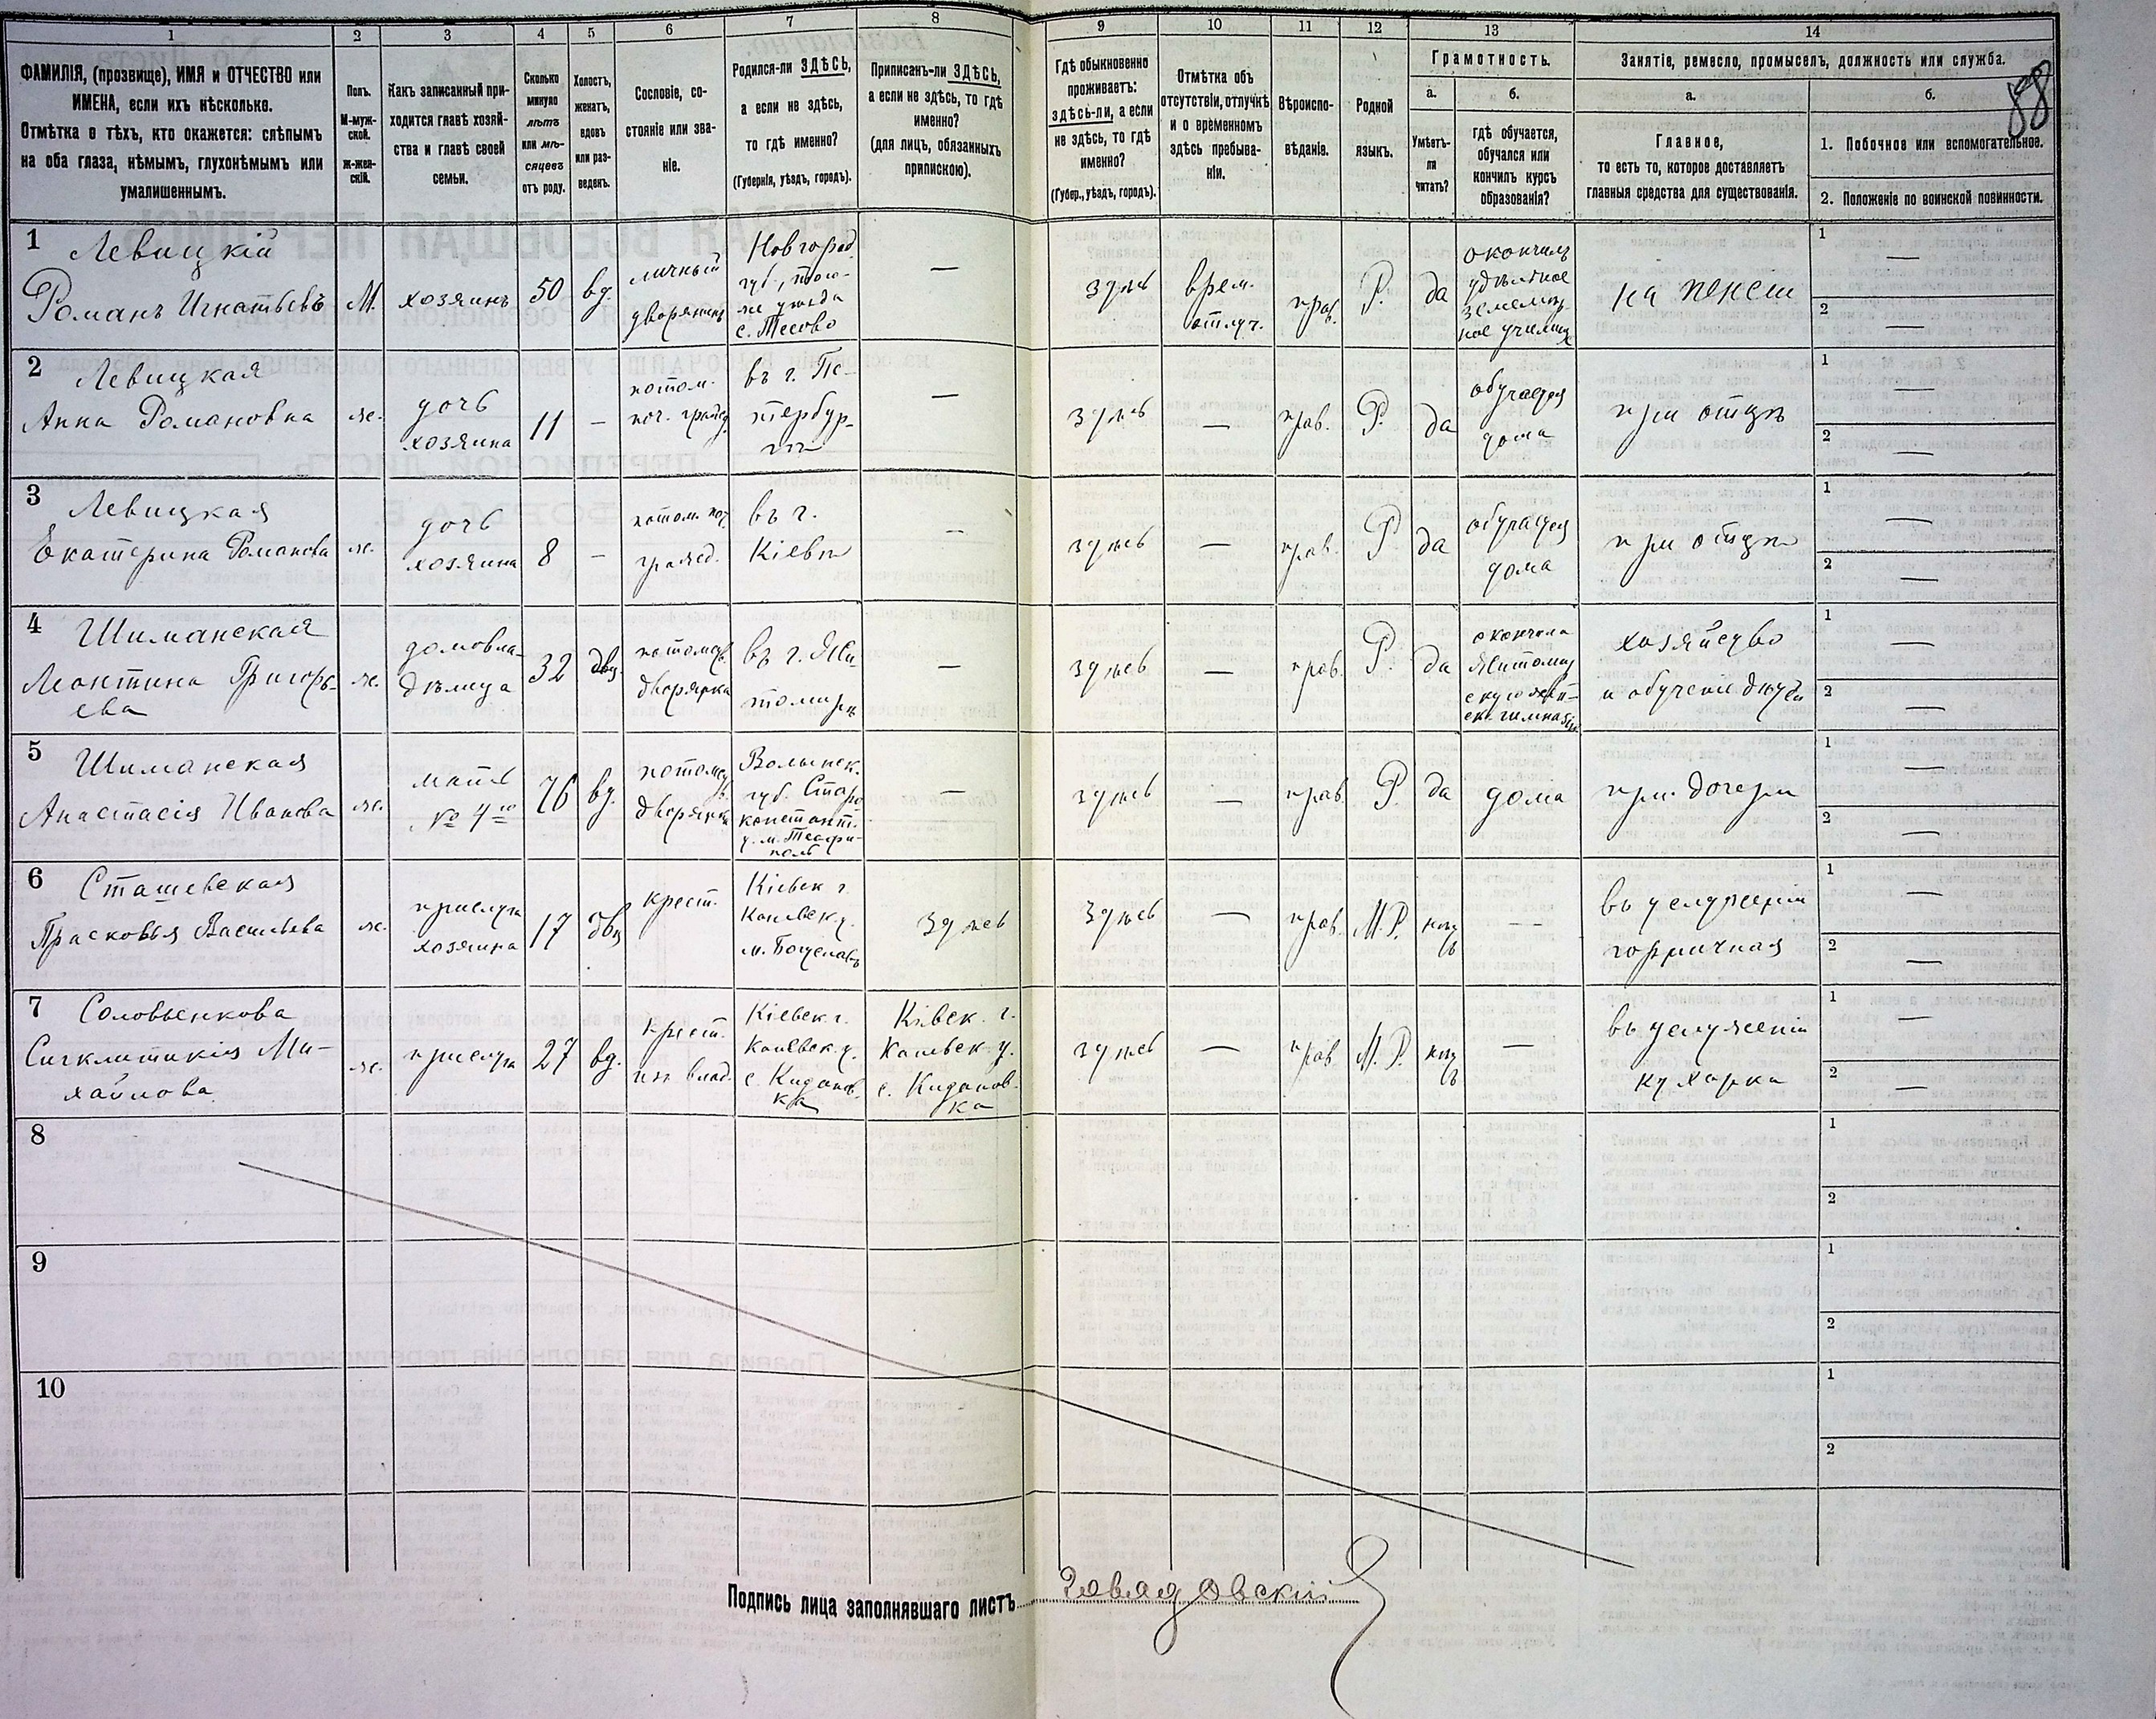 1 2 3 4 5 6 7 8 9 10 11 12 13 14
ФАМИЛІЯ, (прозвище), ИМЯ и ОТЧЕСТВО или
ИМЕНА, если ихъ нѣсколько.
Отмѣтка о тѣхъ, кто окажется: слѣпымъ
на оба глаза, нѣмымъ, глухонѣмымъ или
умалишеннымъ.
Полъ.
М-муж-
ской.
ж-жен-
скій.
Какъ записанный при-
ходится главѣ хозяй-
ства и главѣ своей
семьи.
Сколько
минуло
лѣтъ
или мѣ-
сяцевъ
отъ роду.
Холостъ,
женатъ,
вдовъ
или раз-
веденъ.
Сословіе, со-
стояніе или зва-
ніе.
Родился-ли ЗДѢСЬ,
а если не здѣсь,
то гдѣ именно?
(Губернія, уѣздъ, городъ).
Приписанъ-ли ЗДѢСЬ,
а если не здѣсь, то гдѣ
именно?
(для лицъ, обязанныхъ
припискою).
Гдѣ обыкновенно
проживаетъ:
здѣсь-ли, а если
не здѣсь, то гдѣ
именно?
(Губер., уѣздъ, городъ).
Отмѣтка объ
отсутствіи, отлучкѣ
и о временномъ
здѣсь пребыва-
ніи.
Вѣроиспо-
вѣданіе.
Родной
языкъ.
Грамотность.
а.
Умѣетъ-
ли
читать?
б.
гдѣ обучается,
обучался или
кончилъ курсъ
образованія?
Занятіе, ремесло, промыселъ, должность или служба.
а.
Главное,
то есть то, которое доставляетъ
главныя средства для существованія.
б.
88
1. Побочное или вспомогательное.
2. Положеніе по воинской повинности.
1
Левицкій
Романъ Игнатьевъ
М.
хозяинъ
50
вд.
личный
дворянинъ
Новгород.
губ.,
же уѣзда
с. Тесово
—
здѣсь
врем.
отлуч.
прав.
Р.
да
окончилъ
удѣльное
земледѣ
ное училищ
на пенсіи
1 —
2 —
2
Левицкая
Анна Романовна
ж.
дочь
хозяина
11
–
потом.
поч. гражд.
въ г. Пе-
тербур-
гѣ
—
здѣсь
—
прав.
Р.
да
обучается
дома
при отцѣ
1 —
2 —
3
Левицкая
Екатерина Романова
ж.
дочь
хозяина
8
–
потом. поч.
гражд.
въ г.
Кіевѣ
—
здѣсь
—
прав.
Р.
да
обучается
дома
при отцѣ
1 —
2 —
4
Шиманская
Леонтина Григорь-
ева
ж.
домовла-
дѣлица
32
двц.
потомств.
дворянка
въ г. Жи-
томирѣ
—
здѣсь
—
прав.
Р.
да
окончила
Житомир
скую жен-
ск. гимназію
хозяйство
и обученіе дѣтей
1 —
2 —
5
Шиманская
Анастасія Иванова
ж.
мать
№ 4го
76
вд.
потомств.
дворянка
Волынск.
губ. Старо
констант.
у. м. Теофи-
поль
—
здѣсь
—
прав.
Р.
да
дома
при дочери
1 —
2 —
6
Сташевская
Прасковья Васильева
ж.
прислуга
хозяина
17
двц
крест.
Кіевск г.
Каневск. у.
м. Богуславъ
здѣсь
здѣсь
—
прав.
М. Р.
нѣтъ
– –
въ услуженіи
горничная
1 —
2 —
7
Соловьенкова
Сигклитикія Ми-
хайлова
ж.
прислуга
27
вд.
крест.
изъ влад.
Кіевск г.
Каневск. у.
с. Кидановка
Кіевск. г.
Каневск у.
с. Кидановка
здѣсь
—
прав
М. Р.
нѣтъ
—
въ услуженіи
кухарка
1 —
2 —
8
1
2
9
1
2
10
1
2
Подпись лица заполнявшаго листъ Завадовскій